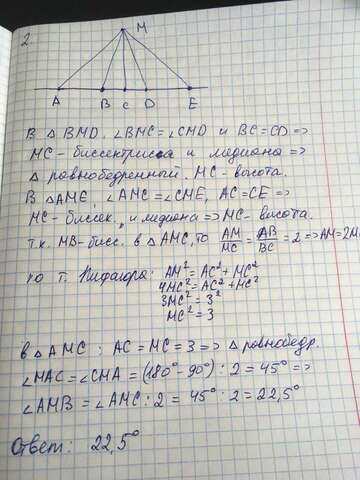 2.
M
A B C D E
В △ BMD. ∠BMC = ∠CMD и BC = CD =>
MC - биссектриса и медиана =>
△ равнобедренный. MC - высота.
В △AME, ∠AMC = ∠CME, AC = CE =>
MC - биссек. и медиана => MC - высота.
т.к. MB - бисс. в △AMC, то AM/MC = AB/BC = 2 => AM = 2M
по т. Пифагора: AM² = AC² + MC²
4MC² = AC² + MC²
3MC² = 3²
MC² = 3
в △ AMC : AC = MC = 3 => △ равнобедр.
∠MAC = ∠CMA = (180° - 90°) : 2 = 45° =>
∠AMB = ∠AMC : 2 = 45° : 2 = 22,5°
Ответ: 22,5°